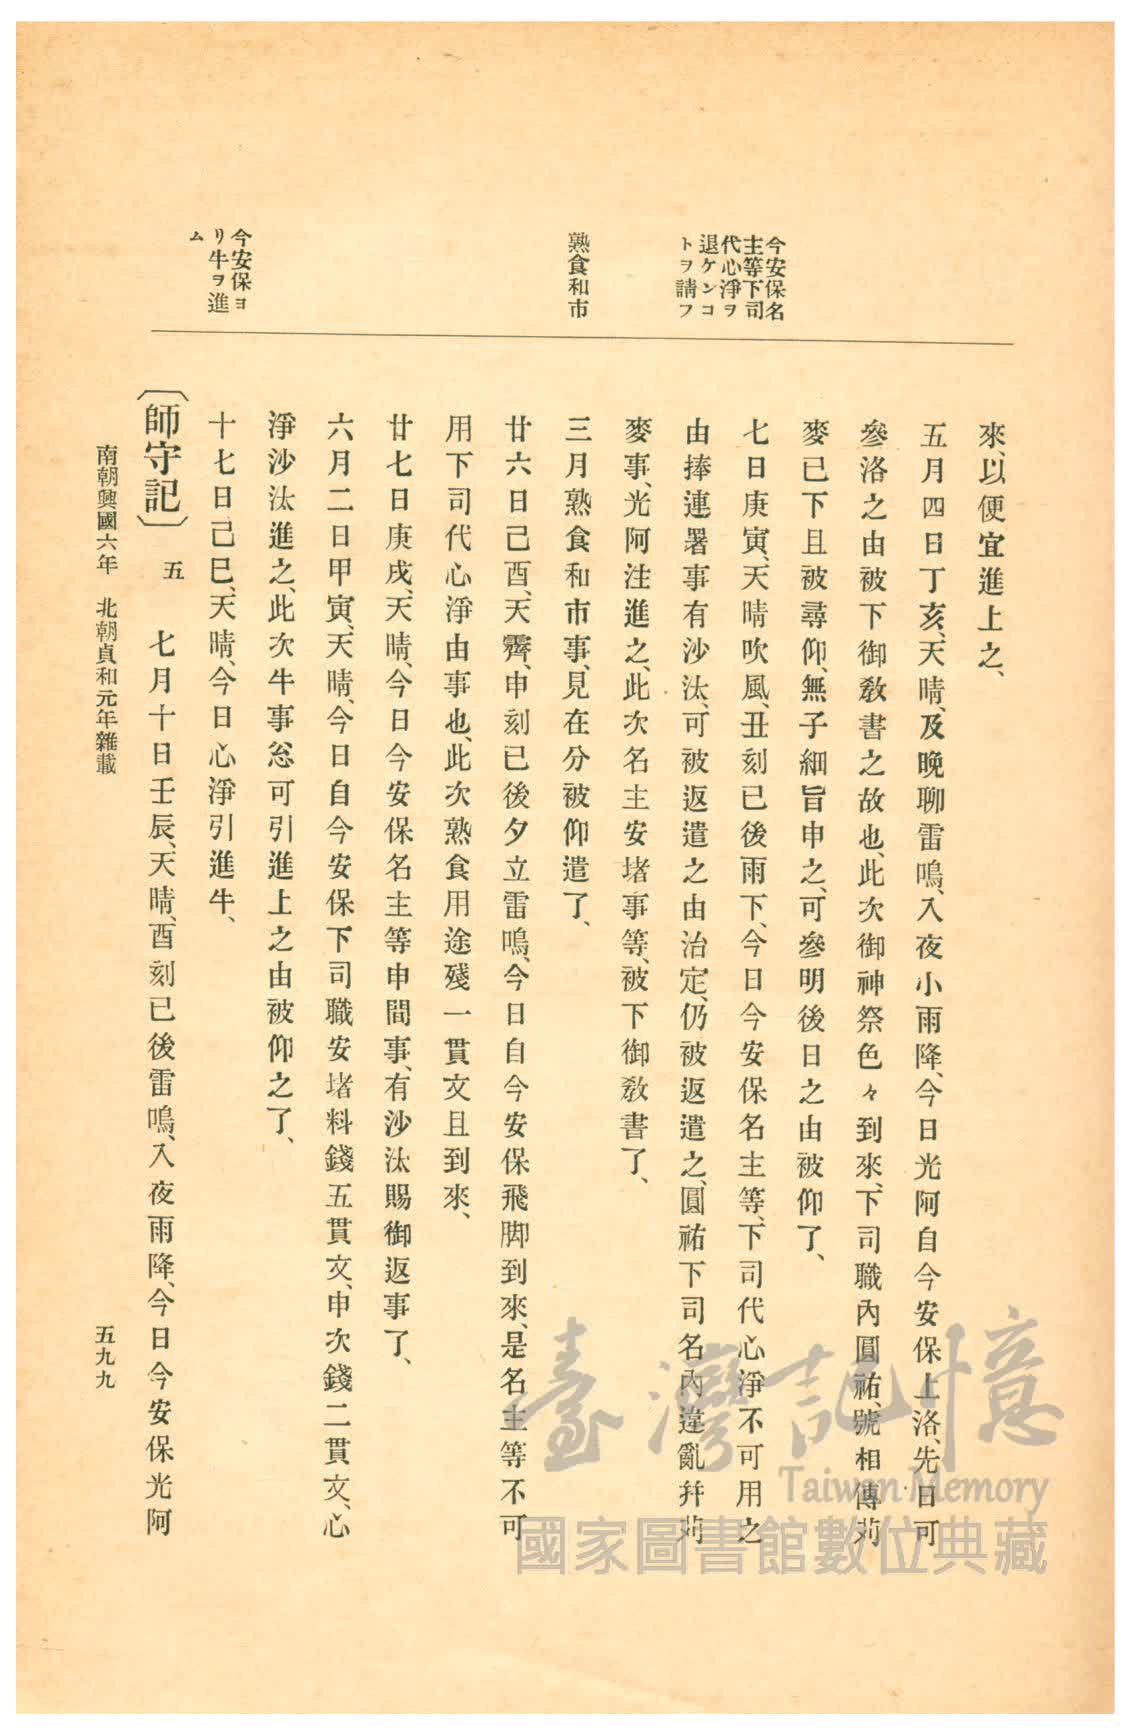 今安保名
主等下司
代心淨ヲ
退ケンコ
トヲ請フ
熟食和市
今安保ヨ
リ牛ヲ進
ム
來、以便宜進上之、
五月四日丁亥、天晴、及晚聊雷鳴、入夜小雨降、今日光阿自今安保上洛、先日可
參洛之由被下御敎書之故也、此次御神祭色々到來、下司職內圓祐、號相傳苅
麥已下且被尋仰、無子細旨申之、可參明後日之由被仰了、
七日庚寅、天晴吹風、丑刻已後雨下、今日今安保名主等、下司代心淨不可用之
由捧連署事有沙汰、可被返遣之由治定、仍被返遣之、圓祐下司名內違亂幷苅
麥事、光阿注進之、此次名主安堵事等、被下御敎書了、
三月熟食和市事、見在分被仰遣了、
廿六日己酉、天霽、申刻已後夕立雷鳴、今日自今安保飛脚到來、是名主等不可
用下司代心淨由事也、此次熟食用途殘一貫文且到來、
廿七日庚戌、天晴、今日今安保名主等申間事、有沙汰賜御返事了、
六月二日甲寅、天晴、今日自今安保下司職安堵料錢五貫文、申次錢二貫文、心
淨沙汰進之、此次牛事忩可引進上之由被仰之了、
十七日己巳、天晴、今日心淨引進牛、
〔師守記〕 五 七月十日壬辰、天晴、酉刻已後雷鳴、入夜雨降、今日今安保光阿
南朝興國六年 北朝貞和元年雜載
五九九
臺灣記憶
Taiwan Memory
國家圖書館數位典藏